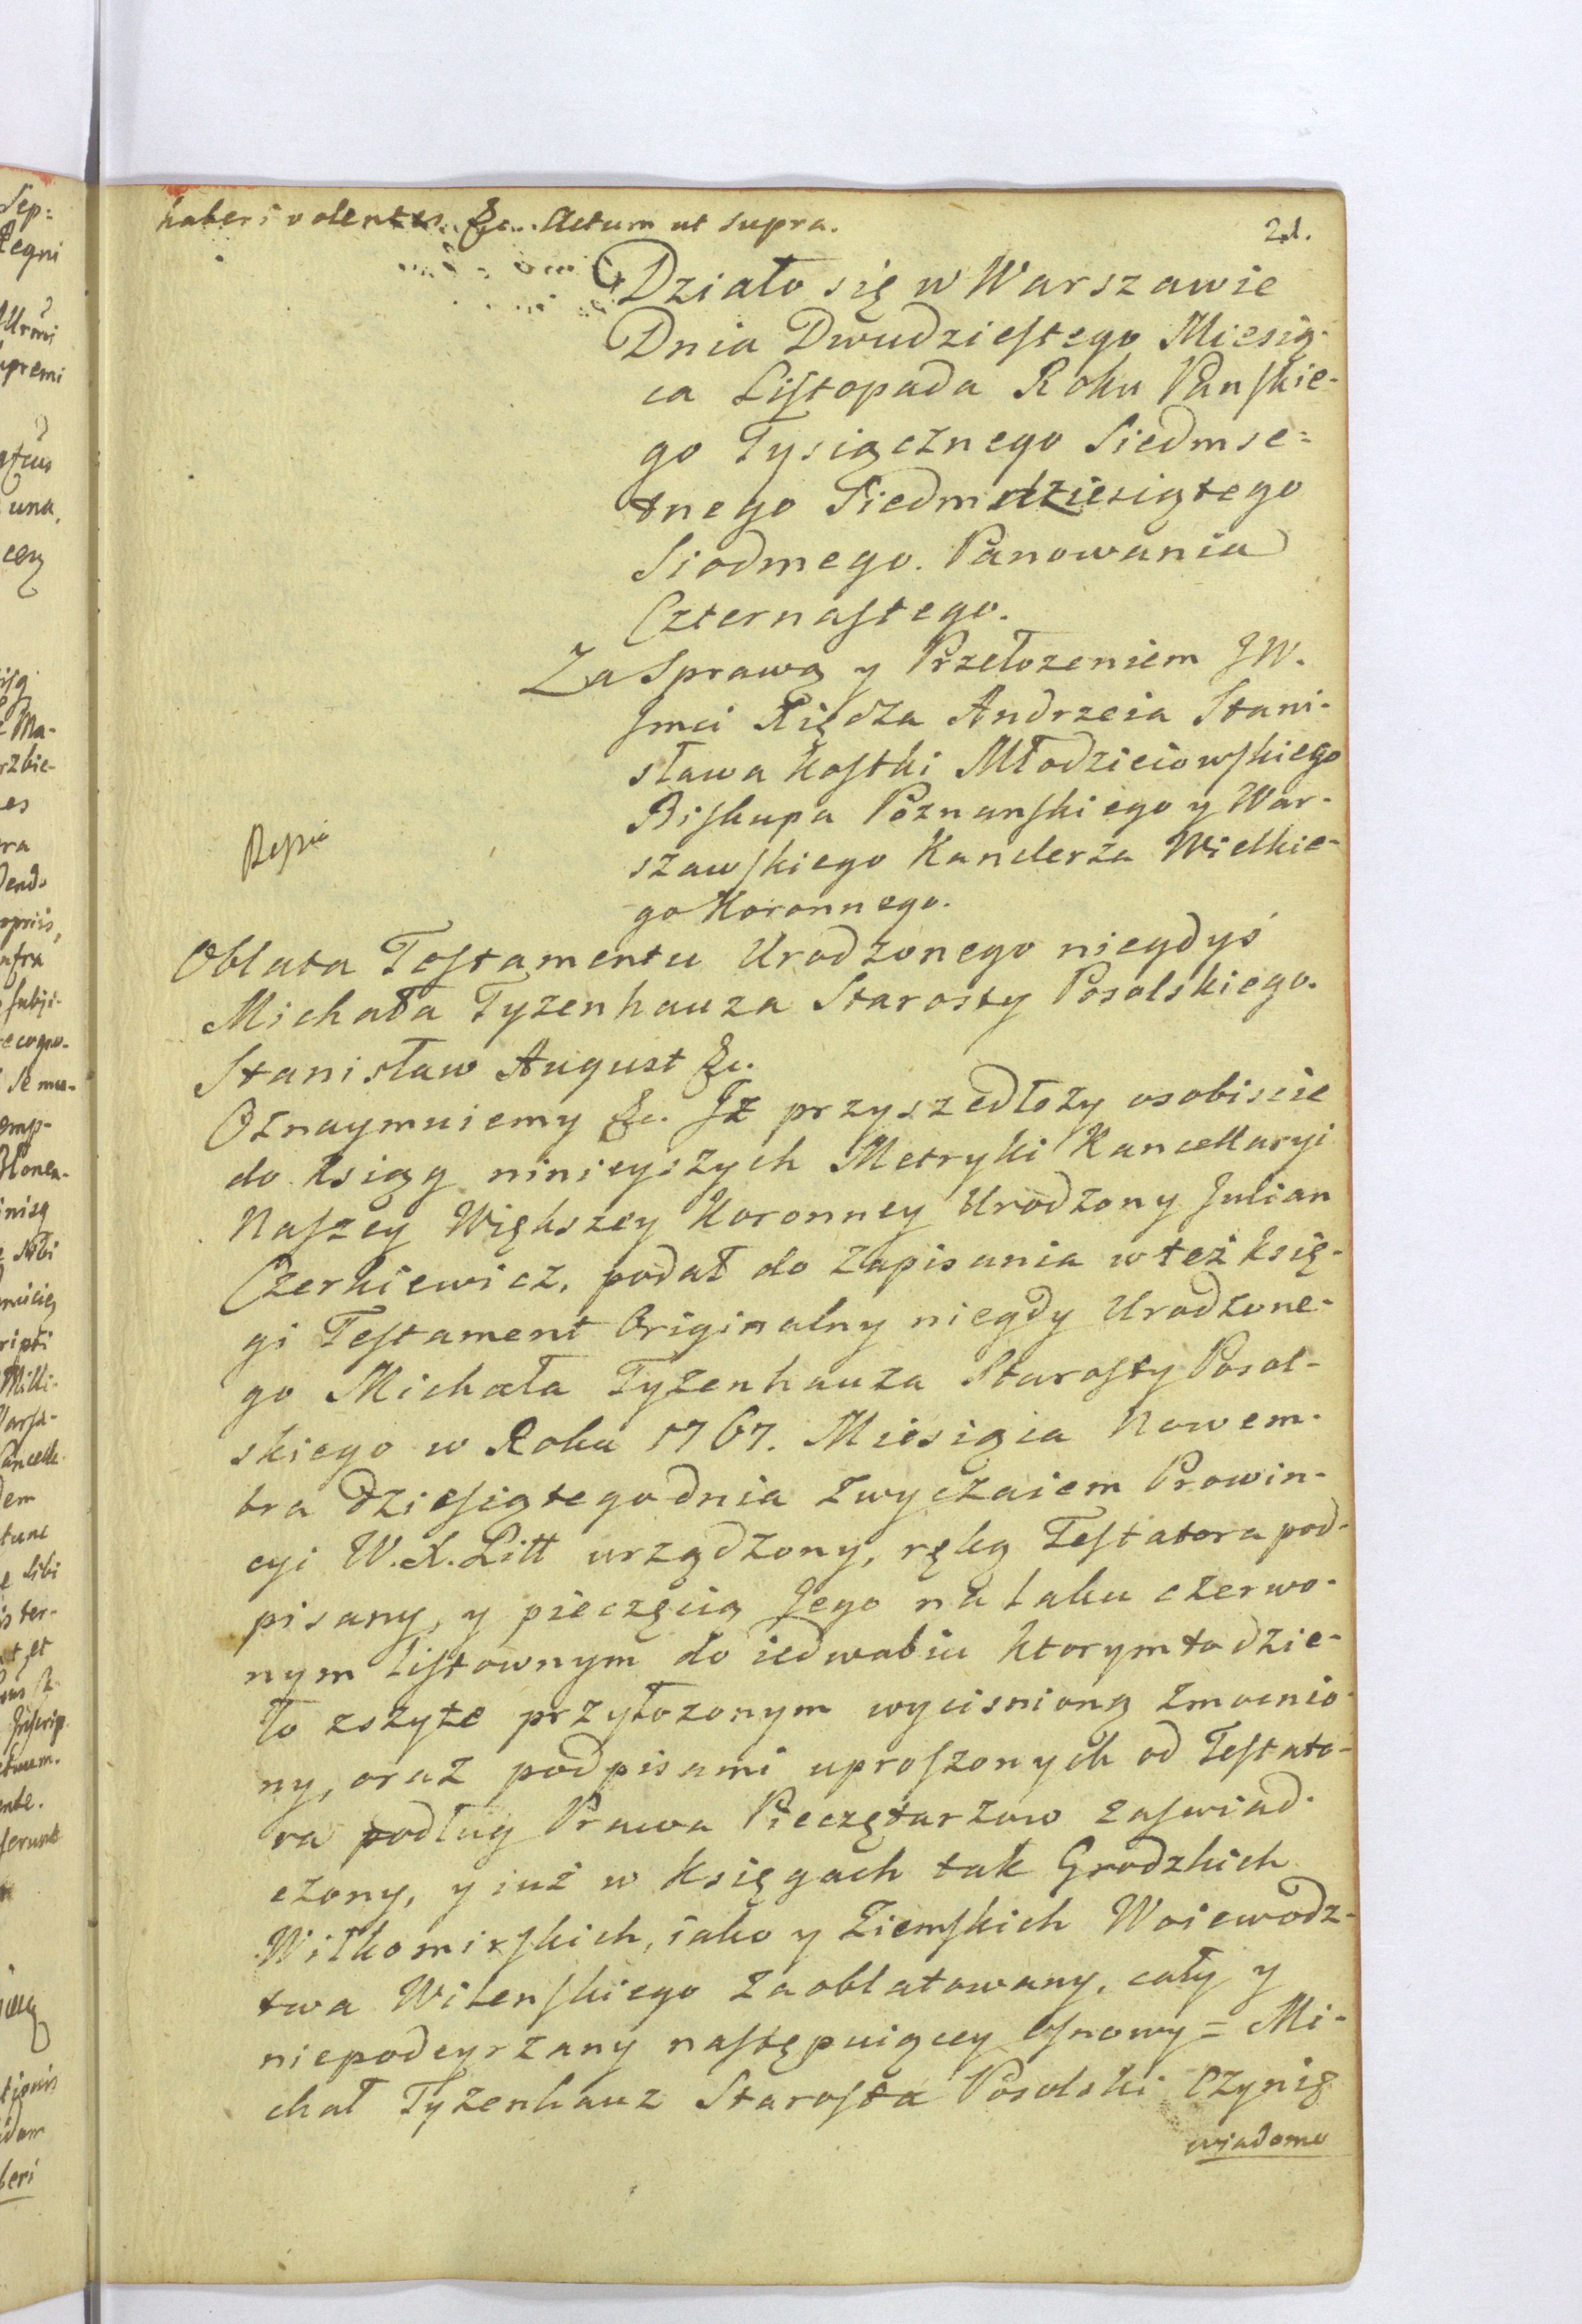 haberi volentes &c. Actum ut supra.
21.
Działo się w Warszawie
Dnia Dwudziestego Miesią-
ca Listopada Roku Panskie-
go Tysiącznego Siedmse=
tnego Siedmdziesiątego
Siodmego. Panowania
Czternastego.
Za Sprawą y Przełozeniem JW.
Jmci Xiędza Andrzeia Stani-
sława Kostki Młodzieiowskiego
Biskupa Poznanskiego y War-
szawskiego Kanclerza Wielkie-
go Koronnego.
Oblata Testamentu Urodzonego niegdyś
Michała Tyzenhauza Starosty Posolskiego.
Stanisław August &c.
Oznaymuiemy &c. Jż przyszedłszy osobiscie
do Ksiąg ninieyszych Metryki Kancellaryi
Naszey Większey Koronney Urodzony Julian
Czerkiewicz, podał do Zapisania w też księ-
gi Testament Originalny niegdy Urodzone-
go Michała Tyzenhauza Starosty Posol-
skiego w Roku 1767. Miesiąca Nowem-
bra dziesiątego dnia Zwyczaiem Prowin-
cyi W. X. Litt urządzony, ręką Testatora pod-
pisany, y pieczęcią Jego na laku czerwo-
nym listownym do iedwabiu ktorym to dzie-
ło zszyte przyłozonym wycisnioną Zmocnio-
ny, oraz podpisami uproszonych od Testato-
ra podług Prawa Pieczętarzow zaswiad-
czony, y iuż w Księgach tak Grodzkich
Wiłkomirskich, iako y Ziemskich Woiewodz-
twa Wilenskiego Zaoblatowany, cały y
niepodeyrzany następuiącey osnowy = Mi-
chał Tyzenhauz Starosta Posolski Czynię
wiadomo